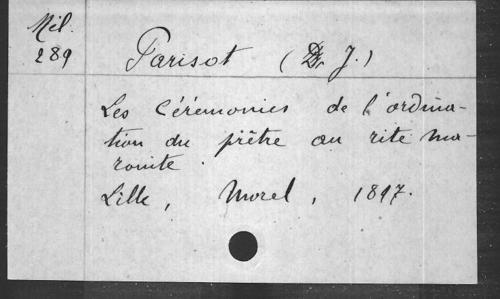 Mil.
289
Parisot (D. J.)
Les Cérémonies de l'ordina-
tion du prêtre au rite ma-
ronite.
Lille, Morel, 1897.